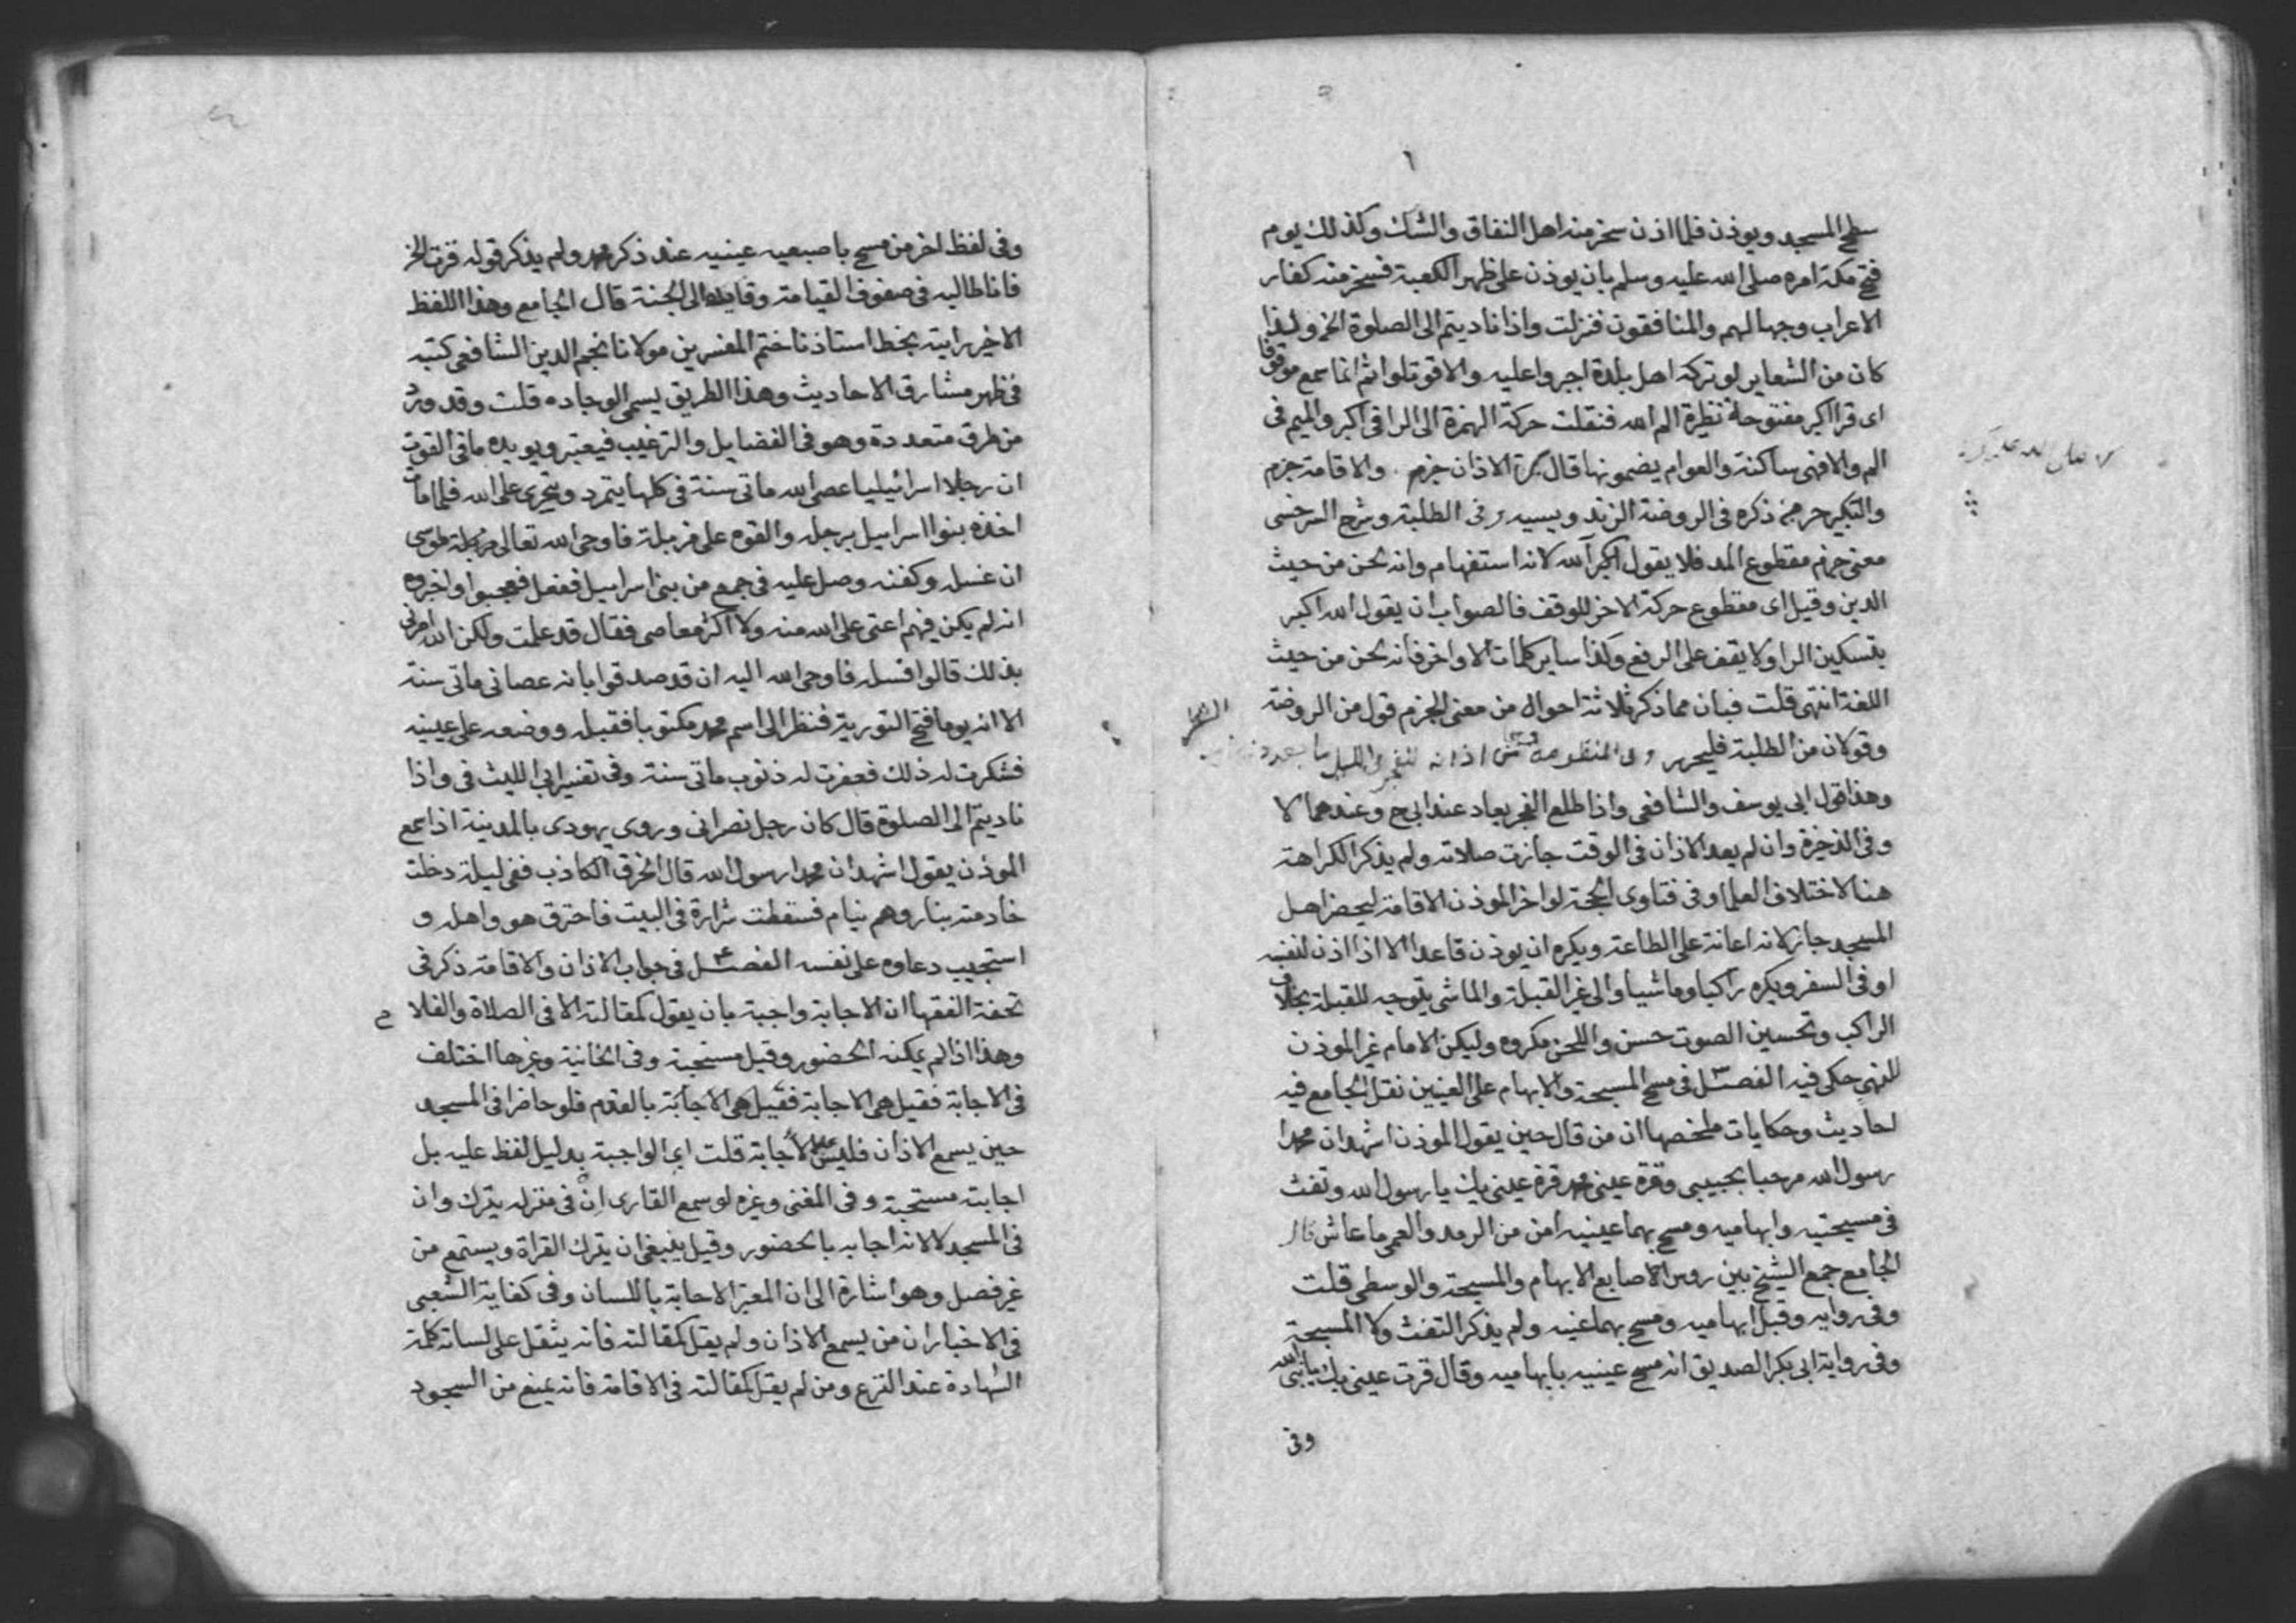 ٦
سطح المسجد ويوذن فلما اذن سخر منه اهل النفاق والشك وكذلك يوم
فتح مكة امره صلى الله عليه وسلم بان يوذن على ظهر الكعبة فسخر منه كفار
الاعراب وجهالهم والمنافقون فنزلت واذا ناديتم الى الصلوة الخ ولهذا
كان من الشعاير لو تركه اهل بلدة اجبروا عليه والا قوتلوا ثم انما سمع موقوفا
اى قرا اكبر مفتوحة نظيرة الم الله فنقلت حركة الهمزة الى الرا فى اكبر والميم فى
الم والا فهى ساكنة والعوام يضمونها قال الاذان جزم والاقامة جزم
والتكبير جزم ذكره فى الروضة الزندويسيه وفى الطلبة وشرح السرخسى
معنى جزم مقطوع المد فلا يقول اكبر آلله لانه استفهام وانه لحن من حيث
الدين وقيل اى مقطوع حركة الاخر للوقف فالصواب ان يقول الله اكبر
بتسكين الرا ولا يقف على الرفع وكذا ساير كلمات الاواخر فانه لحن من حيث
اللغة انتهى قلت فبان مما ذكر ثلاثة احوال من معنى الجزم قول من الروضة
وقولان من الطلبة فليحرر وفى المنظومة اذانه للفجر فى الليل
وهذا قول ابى يوسف والشافعى واذا طلع الفجر يعاد عند ابى ح وعندهما لا
وفى الذخيرة وان لم يعد الاذان فى الوقت جازت صلاته ولم يذكر الكراهة
هنا لاختلاف العلما وفى فتاوى الحجة لو اخر الموذن الاقامة ليحضر اهل
المسجد جاز لانه اعانة على الطاعة ويكره ان يوذن قاعدا الا اذا اذن لنفسه
او فى السفر ويكره راكبا وماشيا والى غير القبلة والماشى يتوجه للقبلة بخلاف
الراكب وتحسين الصوت حسن واللحن مكروه وليكن الامام غير الموذن
للنهى حكى فيه الفصل ٣ فى مسح المسبحة والابهام على العينين نقل الجامع فيه
احاديث وحكايات ملخصها ان من قال حين يقول الموذن اشهد ان محمدا
رسول الله مرحبا بحبيبى وقرة عينى محمد قرة عينى بك يا رسول الله وتفث
فى مسبحتيه وابهاميه ومسح بهما عينيه امن من الرمد والعمى ما عاش قال
الجامع جمع الشيخ بين روس الاصابع الابهام والمسبحة والوسطى قلت
وفى روايه وقبل ابهاميه ومسح بهما عينيه ولم يذكر التفث ولا المسبحة
وفى رواية ابى بكر الصديق انه مسح عينيه بابهاميه وقال قرت عينى بك يا نبى الله
وفى
وفى لفظ اخر من مسح باصبعيه عينيه عند ذكر محمد ولم يذكر قوله قرت الخ
فانا طالبه فى صفوف القيامة وقايده الى الجنة قال الجامع وهذا اللفظ
الاخير رايته بخط استاذنا ختم المفسرين مولانا نجم الدين الشافعى كتبه
فى ظهر مشارق الاحاديث وهذا الطريق يسمى الوجاده قلت وقد ورد
من طرق متعددة وهو فى الفضايل والترغيب فيعتبر ويويده ما فى القوت
ان رجلا اسرائيليا عصى الله ماتى سنة فى كلها يتمرد ويتجرى على الله فلما مات
اخذه بنوا اسراييل برجله والقوه على مزبلة فاوحى الله تعالى الى موسى
ان غسله وكفنه وصل عليه فى جمع من بنى اسراييل ففعل فعجبوا واخبروه
انه لم يكن فيهم اعتى على الله منه ولا اكثر معاصى فقال قد علمت ولكن الله امرنى
بذلك قالوا فسله فاوحى الله اليه ان قد صدقوا بانه عصانى ماتى سنة
الا انه يوما فتح التورية فنظر الى اسم محمد مكتوبا فقبله ووضعه على عينيه
فشكرت له ذلك فغفرت له ذنوب ماتى سنة وفى تفسير ابى الليث فى واذا
ناديتم الى الصلوة قال كان رجل نصرانى وروى يهودى بالمدينة اذا سمع
الموذن يقول اشهد ان محمدا رسول الله قال احرق الكاذب ففى ليلة دخلت
خادمته بنار وهم نيام فسقطت شرارة فى البيت فاحترق هو واهله و
استجيب دعاوه على نفسه الفصل ٤ فى جواب الاذان والاقامة ذكر فى
تحفة الفقها ان الاجابة واجبة بان يقول كمقالته الا فى الصلاة والفلا ح
وهذا اذا لم يمكنه الحضور وقيل مستحبة وفى الخانية وغيرها اختلف
فى الاجابة فقيل هى الاجابة فقيل هى الاجابة بالقدم فلو حاضرا فى المسجد
حين يسمع الاذان فليس عليه الاجابة قلت اى الواجبة بدليل لفظ عليه بل
اجابته مستحبة وفى المغنى وغيره لو سمع القارى ان فى منزله يترك وان
فى المسجد لا لانه اجابه بالحضور وقيل ينبغى ان يترك القراة ويستمع من
غير فصل وهو اشارة الى ان المعتبر الاجابة باللسان وفى كفاية الشعبى
فى الاخبار ان من يسمع الاذان ولم يقل كمقالته فانه يثقل على لسانه كلمة
الشهادة عند النزع ومن لم يقل كمقالته فى الاقامة فانه يمنع من السجود